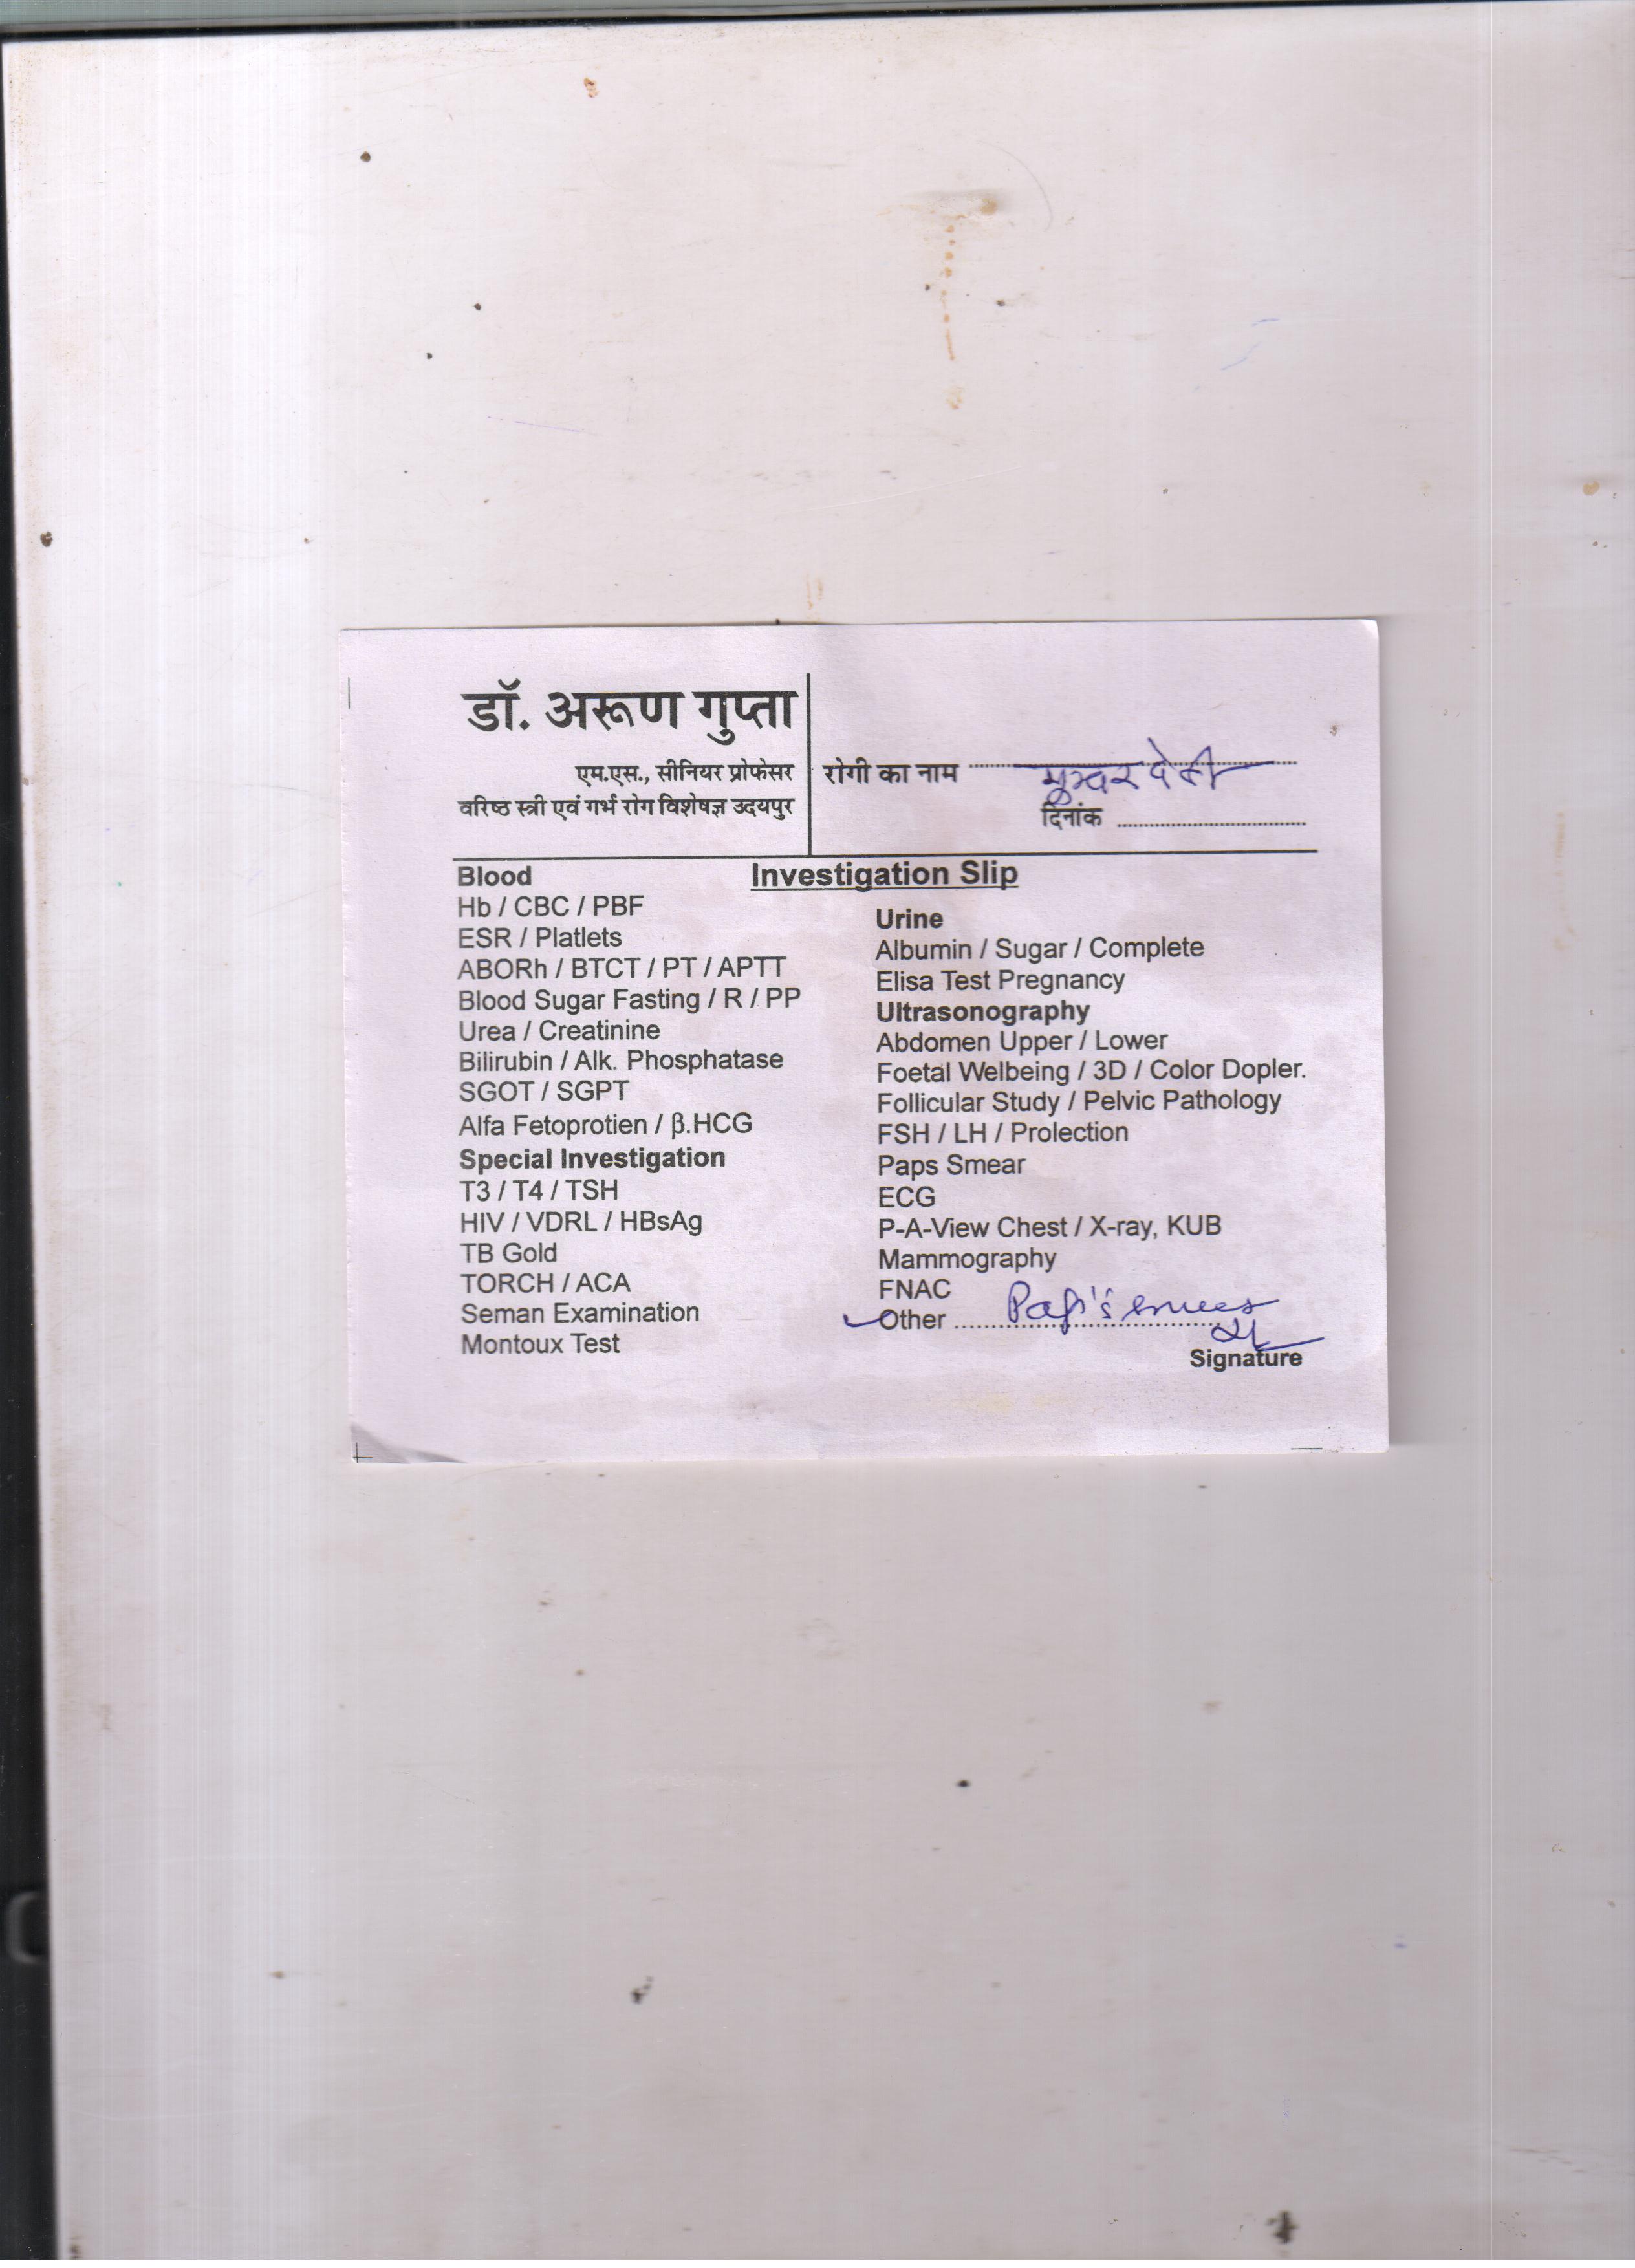 डॉ. अरूण गुप्ता
एम.एस., सीनियर प्रोफेसर
वरिष्ठ स्त्री एवं गर्भ रोग विशेषज्ञ उदयपुर
रोगी का नाम देवी
दिनांक
Investigation Slip
Blood
Hb / CBC / PBF
ESR / Platlets
ABORh / BTCT / PT / APTT
Blood Sugar Fasting / R / PP
Urea / Creatinine
Bilirubin / Alk. Phosphatase
SGOT / SGPT
Alfa Fetoprotien / β.HCG
Special Investigation
T3 / T4 / TSH
HIV / VDRL / HBsAg
TB Gold
TORCH / ACA
Seman Examination
Montoux Test
Urine
Albumin / Sugar / Complete
Elisa Test Pregnancy
Ultrasonography
Abdomen Upper / Lower
Foetal Welbeing / 3D / Color Dopler.
Follicular Study / Pelvic Pathology
FSH / LH / Prolection
Paps Smear
ECG
P-A-View Chest / X-ray, KUB
Mammography
FNAC
Other Pap's smear
Signature